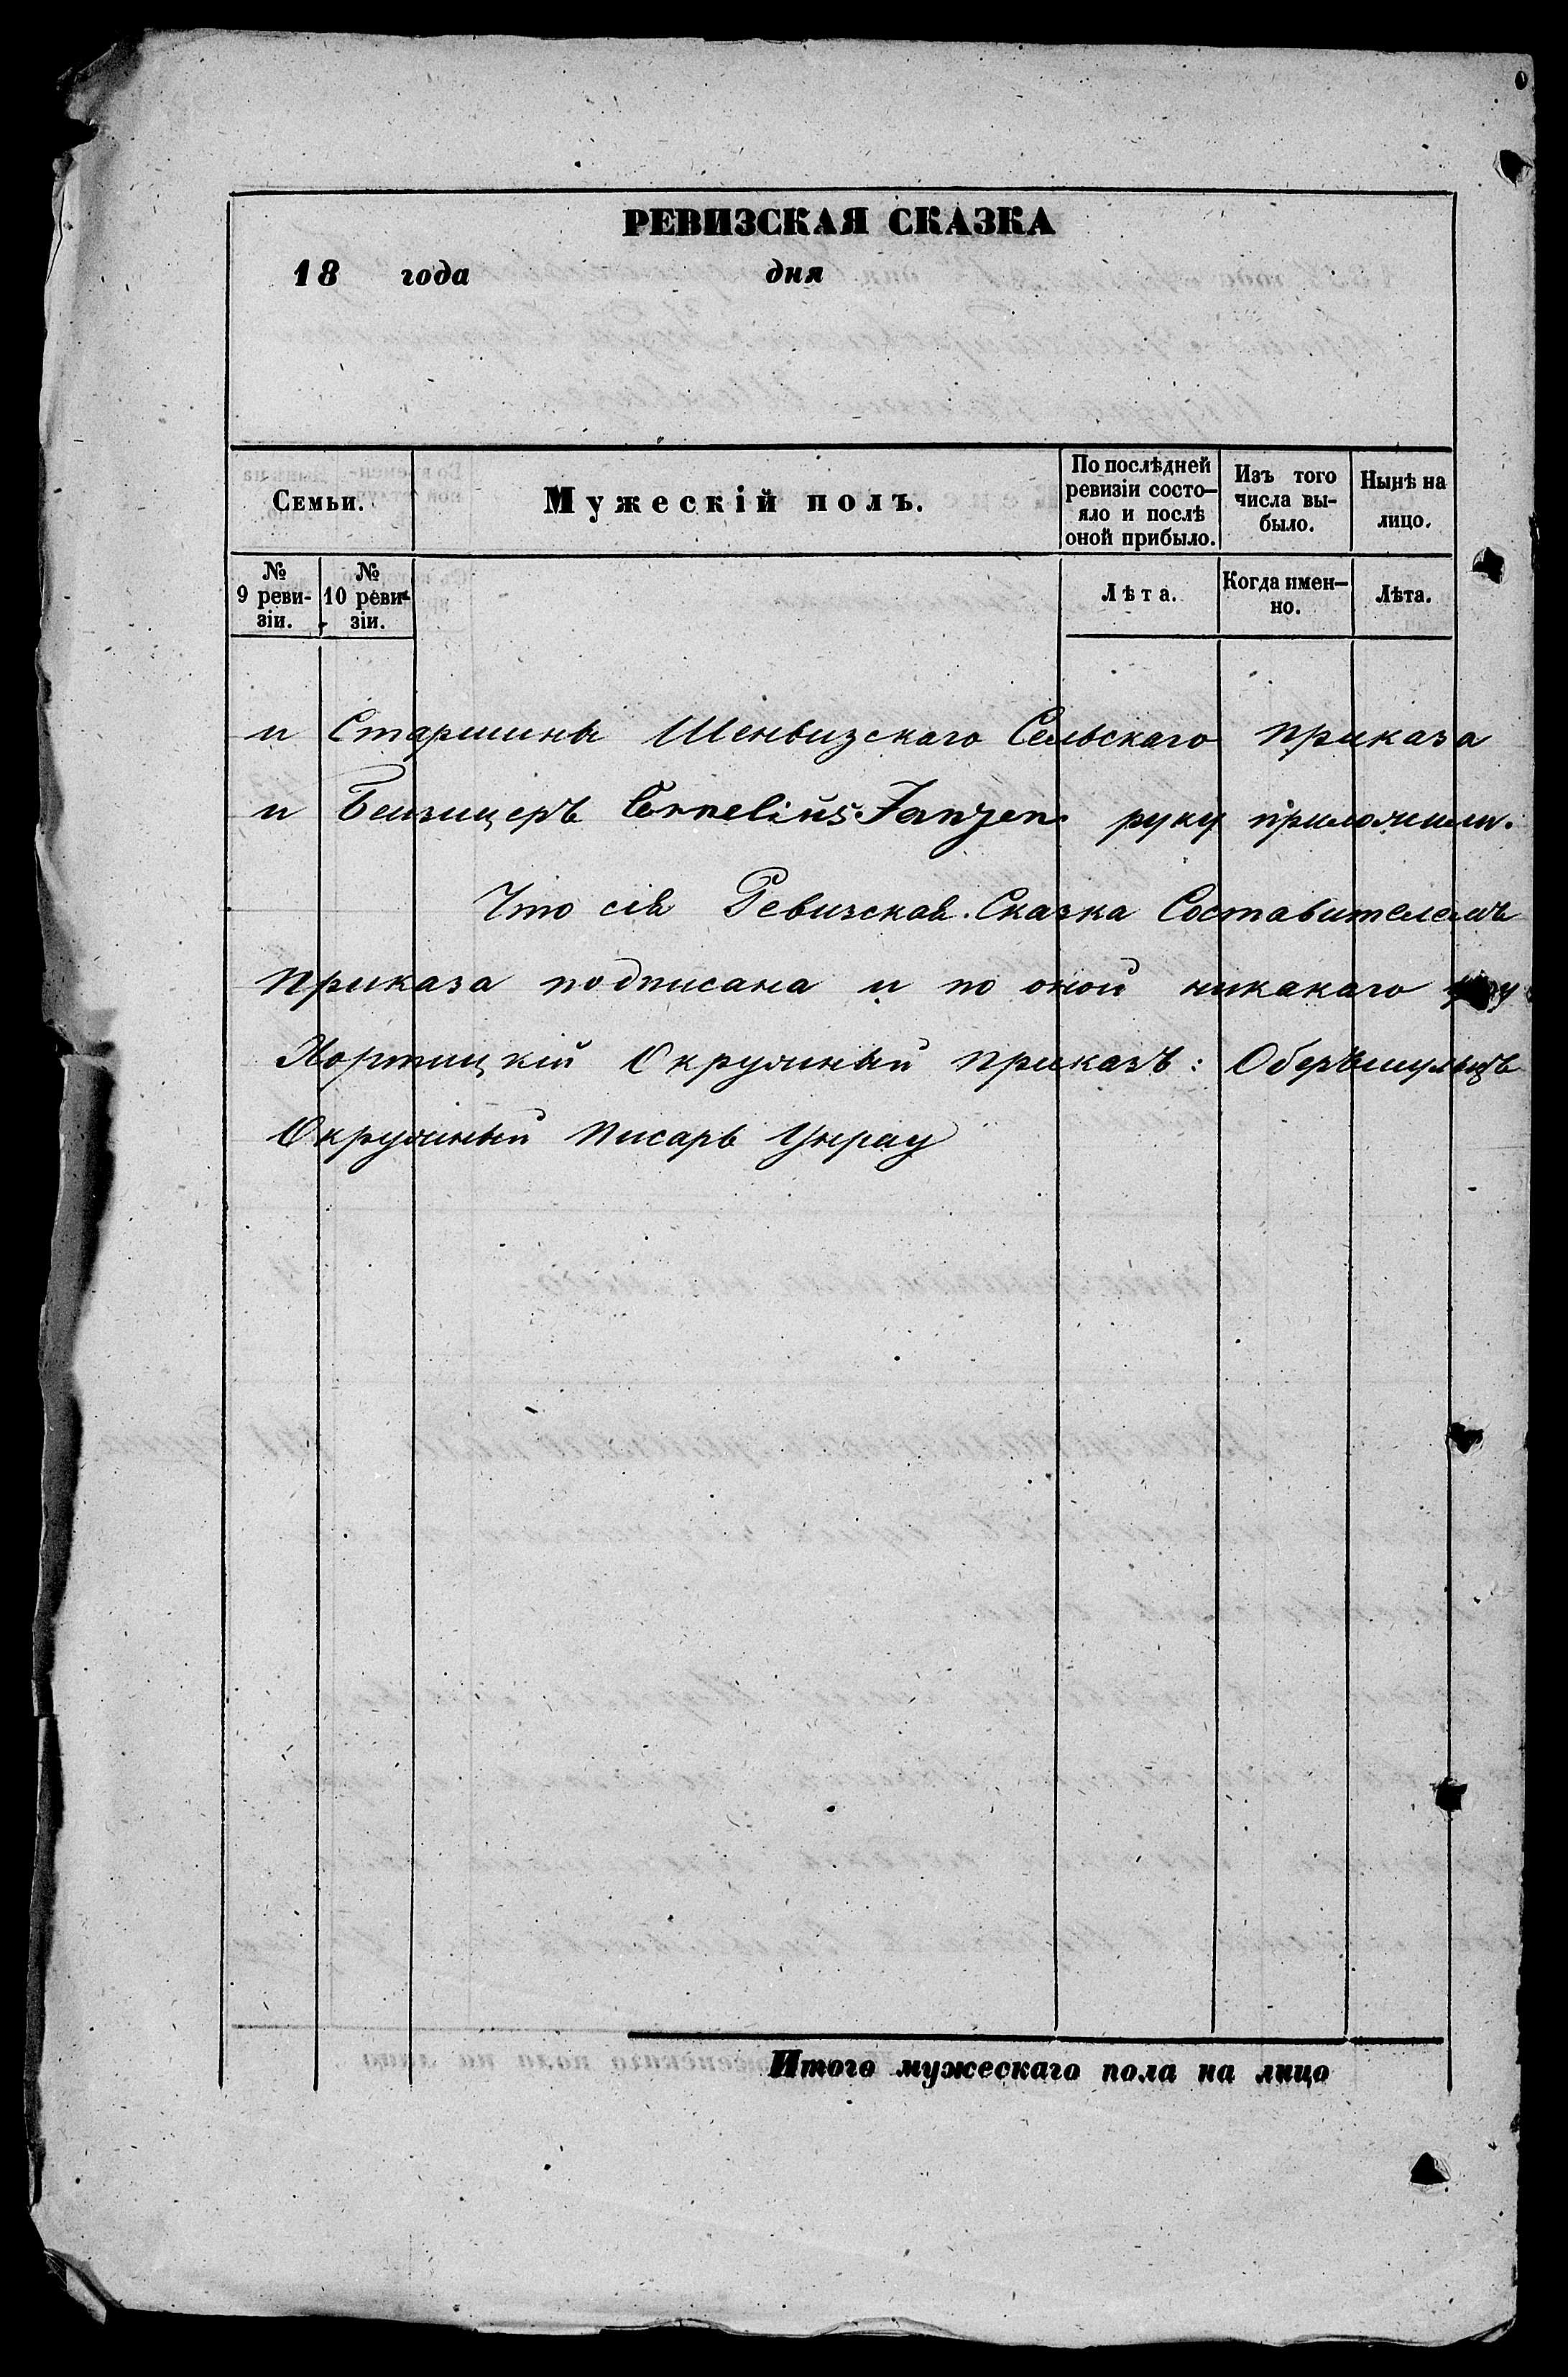 РЕВИЗСКАЯ СКАЗКА
18 года дня
Семьи.
Мужескій полъ.
По послѣдней ревизіи состо- яло и послѣ оной прибыло.
Изъ того числа вы- было.
Нынѣ на лицо.
№ 9 реви- зіи.
№ 10 реви- зіи.
Лѣта.
Когда имен- но.
Лѣта.
и Старшины Шенвизскаго Сельскаго приказа
и Беизицеръ Cornelius Janzen. руку приложили.
Что сія Ревизская. Сказка Составителемъ
приказа подписана и по оной никакаго
Хортицкій Окружный приказъ: Оберъшульцъ
Окружный писарь Унрау
Итого мужескаго пола на лицо